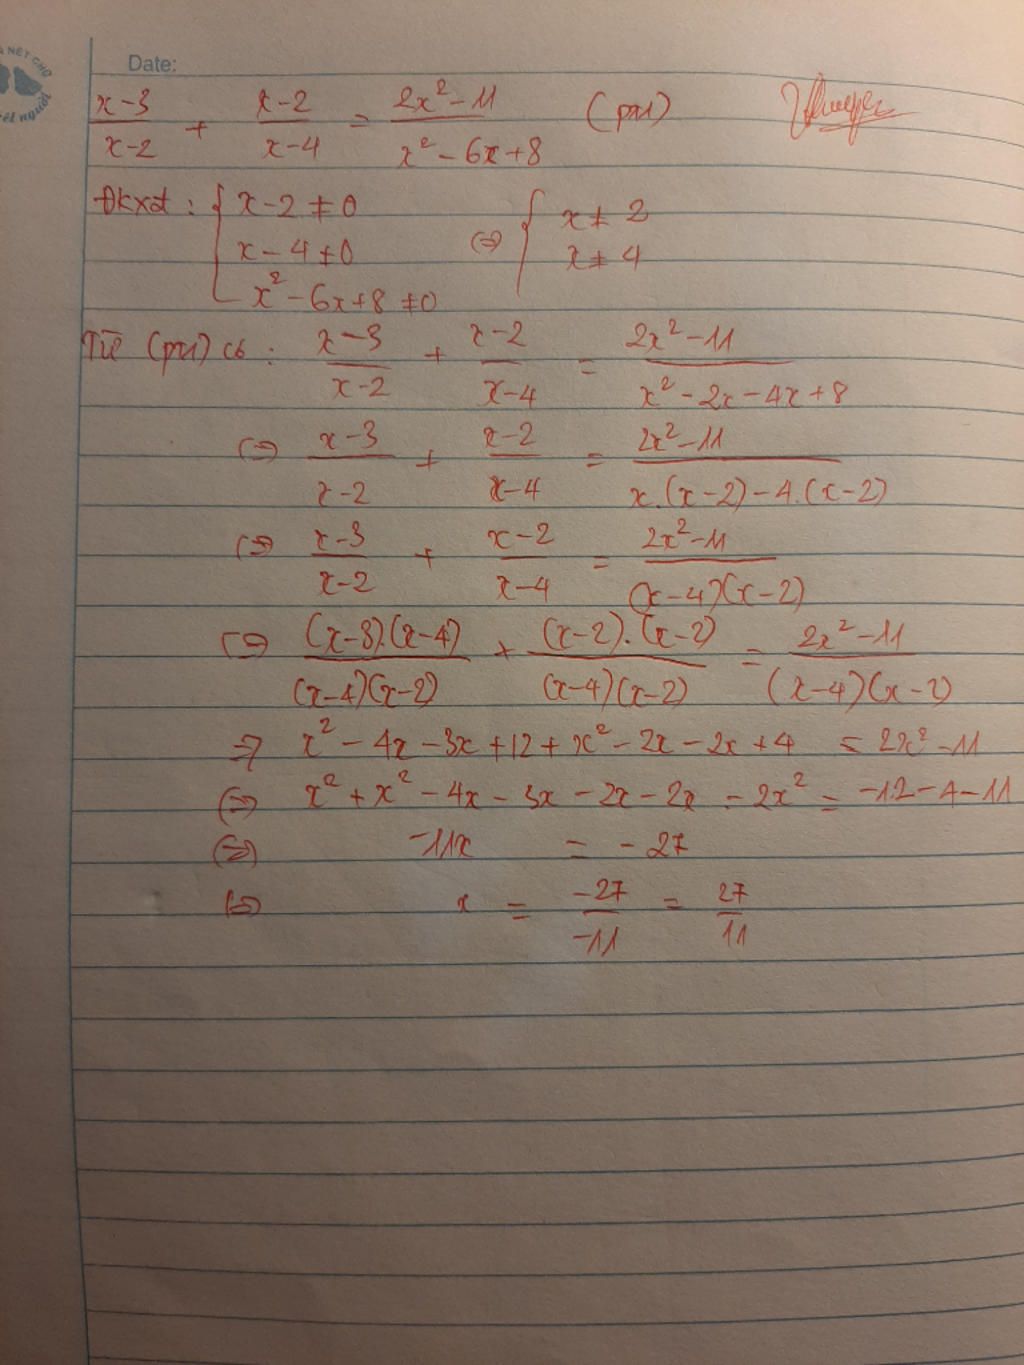 NÉT CHỮ
nết người
Date:
x-3/x-2 + x-2/x-4 = 2x²-11/x²-6x+8 (pt1)
Đkxđ: { x-2≠0 ; x-4≠0 ; x²-6x+8≠0 ⇔ { x≠2 ; x≠4
Từ (pt1) có: x-3/x-2 + x-2/x-4 = 2x²-11/x²-2x-4x+8
⇔ x-3/x-2 + x-2/x-4 = 2x²-11/x.(x-2)-4.(x-2)
⇔ x-3/x-2 + x-2/x-4 = 2x²-11/(x-4)(x-2)
⇔ (x-3).(x-4)/(x-4)(x-2) + (x-2).(x-2)/(x-4)(x-2) = 2x²-11/(x-4)(x-2)
⇒ x²-4x-3x+12+x²-2x-2x+4 = 2x²-11
⇔ x²+x²-4x-3x-2x-2x-2x² = -12-4-11
⇔ -11x = -27
⇔ x = -27/-11 = 27/11